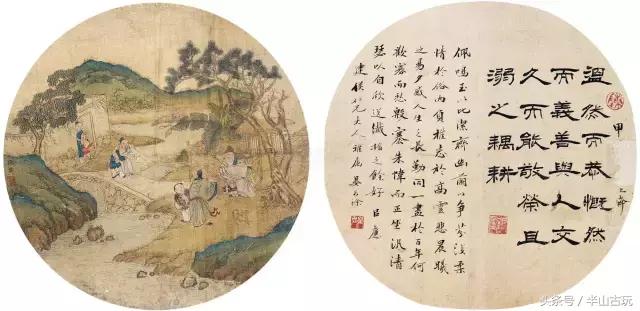 溫然而恭慨然
而義善與人交
久而能敬榮且
溺之耦耕
甲
佩鳴玉以比潔齊幽蘭以爭芬淡柔
情於俗內負雅志於高雲悲晨曦
之易夕感人生之長勤同一盡於百年何
歡寡而愁殷褰朱幃而正坐汎清
瑟以自欣送纖指之餘好
建侯仁兄大人雅屬
头条号 / 半山古玩